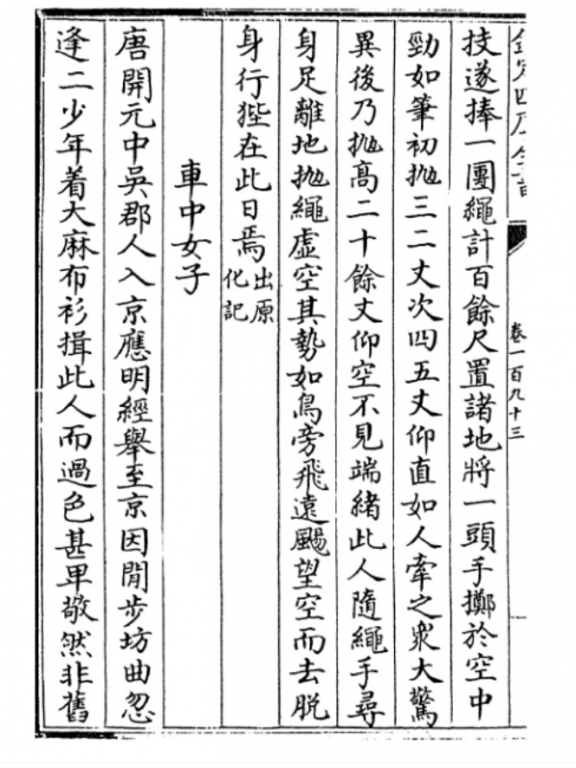 欽定四庫全書
卷一百九十三
技遂捧一團繩計百餘尺置諸地將一頭手擲於空中
勁如筆初抛三二丈次四五丈仰直如人牽之衆大驚
異後乃抛高二十餘丈仰空不見端緒此人隨繩手尋
身足離地抛繩虛空其勢如鳥旁飛遠颺望空而去脱
身行狴在此日焉出原
化記
車中女子
唐開元中吳郡人入京應明經舉至京因閒步坊曲忽
逢二少年着大麻布衫揖此人而過色甚卑敬然非舊